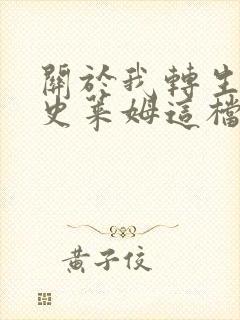 關於我轉生
史萊姆這檔
黃子佼